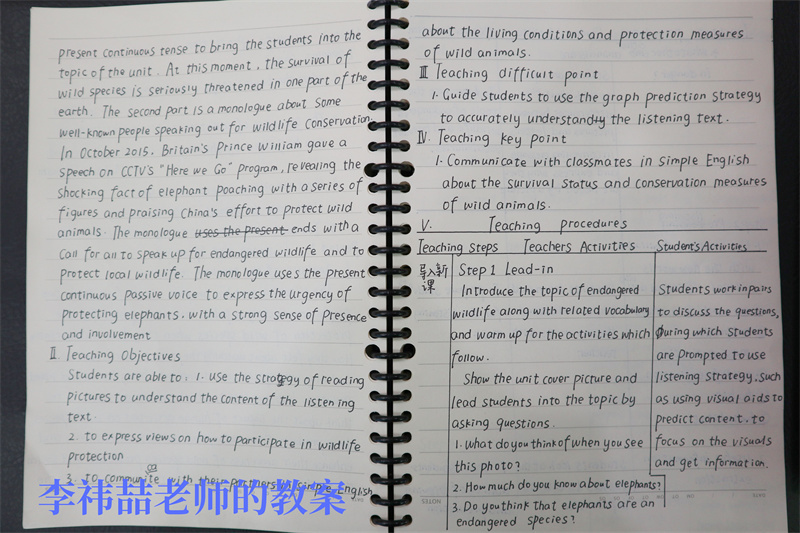 present continuous tense to bring the students into the
topic of the unit. At this moment, the survival of
wild species is seriously threatened in one part of the
earth. The second part is a monologue about some
well-known people speaking out for wildlife conservation.
In October 2015, Britain's Prince William gave a
speech on CCTV's "Here we Go" program, revealing the
shocking fact of elephant poaching with a series of
figures and praising China's effort to protect wild
animals. The monologue uses the present ends with a
call for all to speak up for endangered wildlife and to
protect local wildlife. The monologue uses the present
continuous passive voice to express the urgency of
protecting elephants, with a strong sense of presence
and involvement
II Teaching Objectives
Students are able to: 1. use the strategy of reading
pictures to understand the content of the listening
text.
2. to express views on how to participate in wildlife
protection
3. to with their partners in simple English
李祎喆老师的教案
about the living conditions and protection measures
of wild animals.
III Teaching difficult point
1. Guide students to use the graph prediction strategy
to accurately understand the listening text.
IV. Teaching key point
1. Communicate with classmates in simple English
about the survival status and conservation measures
of wild animals.
V. Teaching procedures
Teaching Steps Teachers Activities Student's Activities
导入新
课
Step 1 Lead-in
Introduce the topic of endangered
wildlife along with related vocabulary
and warm up for the activities which
follow.
Show the unit cover picture and
lead students into the topic by
asking questions.
1. What do you think of when you see
this photo?
2. How much do you know about elephants?
3. Do you think that elephants are an
endangered species?
Students work in pairs
to discuss the questions,
During which students
are prompted to use
listening strategy, such
as using visual aids to
predict content, to
focus on the visuals
and get information.
NOTES